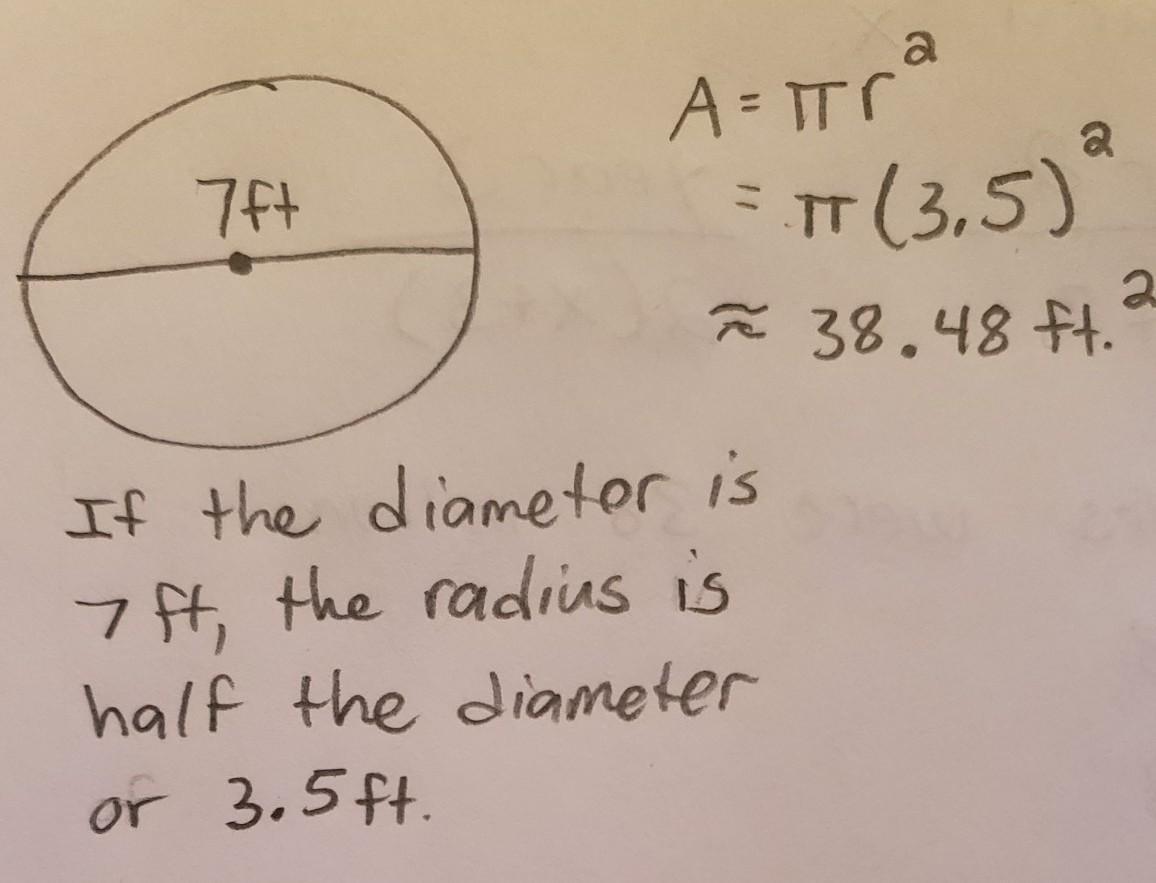 7ft
A = πr²
= π(3.5)²
≈ 38.48 ft.²
If the diameter is
7 ft, the radius is
half the diameter
or 3.5 ft.